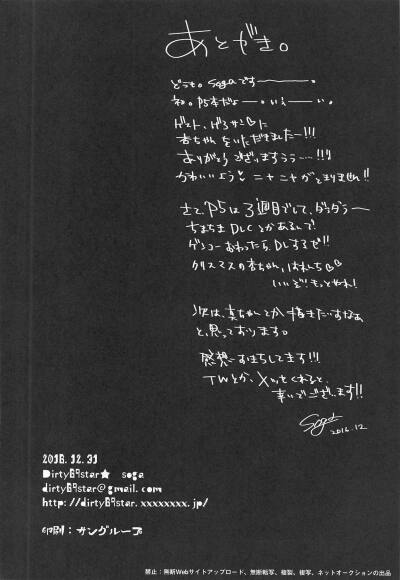 あとがき。
どうも。sogaです———。
初。P5本だよ—。いぇ—い。
ゲスト、げろサンに
杏ちゃんをいただきました—!!!
ありがとうございますぅぅ…!!!
かわいいよう♡ニヤニヤがとまりません!!
さて、P5は3週目でして、ダラダラ—
ちまちまDLCとかあるんで
ゲンコーおわったら、DLするぜ!!
クリスマスの杏ちゃん、はれんち♡♡
いいぞ!もっとやれ!
次は、真ちゃんとか描きたいすなぁ
と、思っております。
感想おまちしてます!!!
TWとか、メッセくれると、
幸いでございます!!
Soga
2016.12
2016.12.31
Dirty69star★ soga
dirty69star@gmail.com
http://dirty69star.xxxxxxxx.jp/
印刷：サングループ
禁止：無断Webサイトアップロード、無断転写、複製、複写、ネットオークションの出品